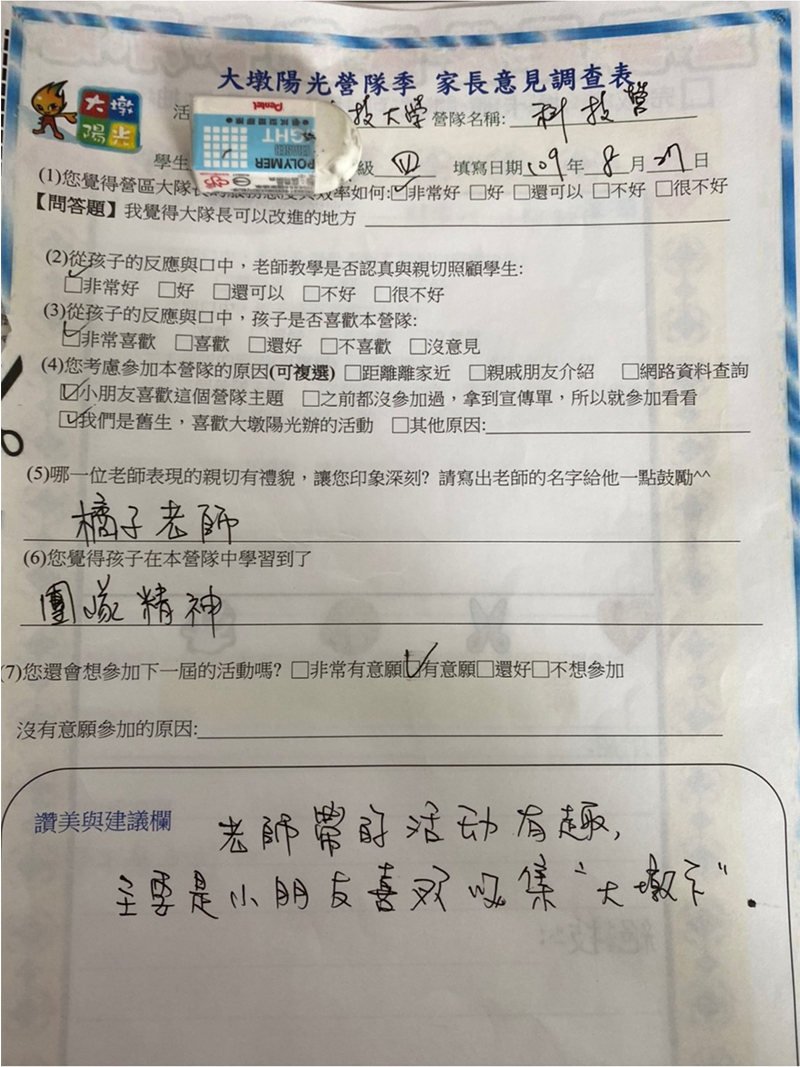 大墩陽光營隊季 家長意見調查表
大墩
陽光
活 技大學 營隊名稱: 科技營
Pentel
POLYMER
學生 級 四 填寫日期 109 年 8 月 27 日
(1)您覺得營區大隊長的服務態度與效率如何:☑非常好 □好 □還可以 □不好 □很不好
【問答題】我覺得大隊長可以改進的地方
(2)從孩子的反應與口中，老師教學是否認真與親切照顧學生:
☑非常好 □好 □還可以 □不好 □很不好
(3)從孩子的反應與口中，孩子是否喜歡本營隊:
☑非常喜歡 □喜歡 □還好 □不喜歡 □沒意見
(4)您考慮參加本營隊的原因(可複選) □距離離家近 □親戚朋友介紹 □網路資料查詢
☑小朋友喜歡這個營隊主題 □之前都沒參加過，拿到宣傳單，所以就參加看看
☑我們是舊生，喜歡大墩陽光辦的活動 □其他原因:
(5)哪一位老師表現的親切有禮貌，讓您印象深刻? 請寫出老師的名字給他一點鼓勵^^
橘子老師
(6)您覺得孩子在本營隊中學習到了
團隊精神
(7)您還會想參加下一屆的活動嗎? □非常有意願☑有意願□還好□不想參加
沒有意願參加的原因:
讚美與建議欄
老師帶的活动有趣,
主要是小朋友喜欢收集"大墩卞".